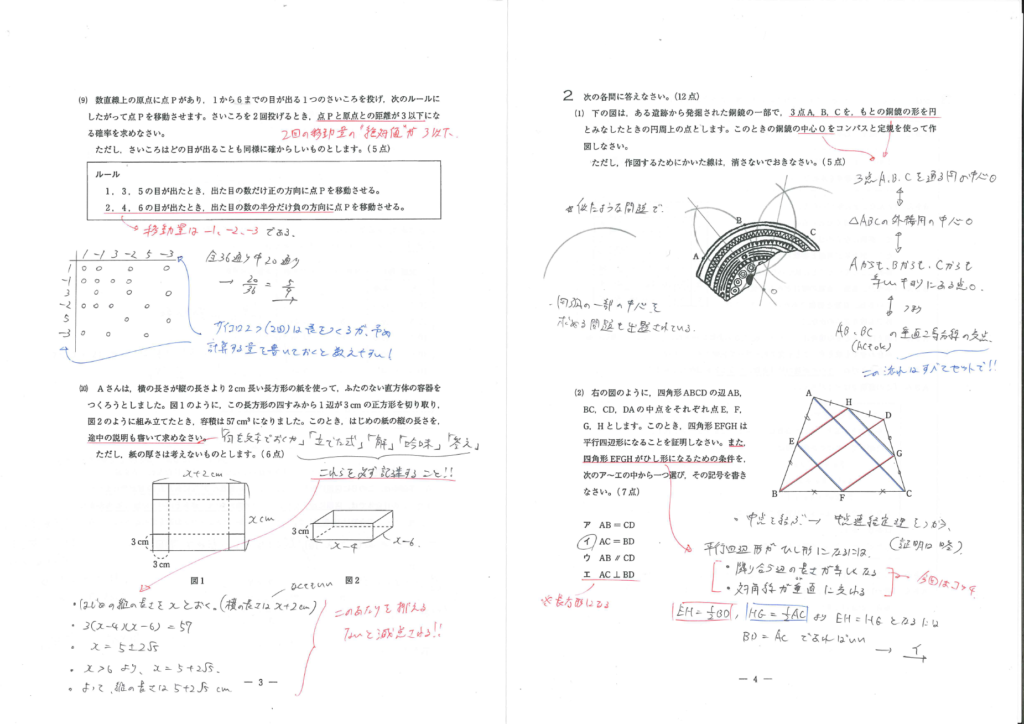 (9) 数直線上の原点に点Pがあり，1から6までの目が出る1つのさいころを投げ，次のルールに
したがって点Pを移動させます。さいころを2回投げるとき，点Pと原点との距離が3以下にな
る確率を求めなさい。
2回の移動量の"絶対値"が3以下、
ただし，さいころはどの目が出ることも同様に確からしいものとします。（5点）
ルール
1，3，5の目が出たとき，出た目の数だけ正の方向に点Pを移動させる。
2，4，6の目が出たとき，出た目の数の半分だけ負の方向に点Pを移動させる。
移動量は -1, -2, -3 である。
1 -1 3 -2 5 -3
1
-1
3
-2
5
-3
全36通り中20通り
→ 20/36 = 5/9
サイコロ2つ(2回)は表をつくるが、予め
計算する量で書いておくと数えやすい!
(10) Aさんは，横の長さが縦の長さより2cm長い長方形の紙を使って，ふたのない直方体の容器を
つくろうとしました。図1のように，この長方形の四すみから1辺が3cmの正方形を切り取り，
図2のように組み立てたとき，容積は57cm³になりました。このとき，はじめの紙の縦の長さを，
途中の説明も書いて求めなさい。
「何を文字でおくか」「立てた式」「解」「吟味」「答え」
ただし，紙の厚さは考えないものとします。（6点）
これらを必ず記述すること!!
x+2cm
x cm
3cm
3cm
図1
3cm
x-4
x-6
図2
・はじめの縦の長さをxとおく。(横の長さはx+2cm)
・3(x-4)(x-6)=57
・x=5±2√5
・x>6より、x=5+2√5.
・よって、縦の長さは5+2√5 cm
このあたりを抑える
ないと減点される!!
― 3 ―
2 次の各問に答えなさい。（12点）
(1) 下の図は，ある遺跡から発掘された銅鏡の一部で，3点A，B，Cを，もとの銅鏡の形を円
とみなしたときの円周上の点とします。このときの銅鏡の中心Oをコンパスと定規を使って作
図しなさい。
ただし，作図するためにかいた線は，消さないでおきなさい。（5点）
似たような問題で、
A
B
C
O
・円弧の一部の中心を
求める問題も出題されている。
3点A,B,Cを通る円の中心O
△ABCの外接円の中心O
Aからも、Bからも、Cからも
等しい距離にある点O.
つまり
AB、BCの垂直二等分線の交点
(ACもok)
この流れはすべてセットで!!
(2) 右の図のように，四角形ABCDの辺AB，
BC，CD，DAの中点をそれぞれ点E，F，
G，Hとします。このとき，四角形EFGHは
平行四辺形になることを証明しなさい。また，
四角形EFGHがひし形になるための条件を，
次のア～エの中から一つ選び，その記号を書き
なさい。（7点）
A
H
D
E
G
B
F
C
ア AB＝CD
イ AC＝BD
ウ AB∥CD
エ AC⊥BD
※長方形になる
・中点を結ぶ → 中点連結定理をつかう。
(証明は略)
平行四辺形がひし形になるには、
・隣り合う辺の長さが等しくなる
・対角線が垂直に交わる
EH=½BD, HG=½AC より EH=HGとなるには
BD=ACであればいい
→ イ
― 4 ―